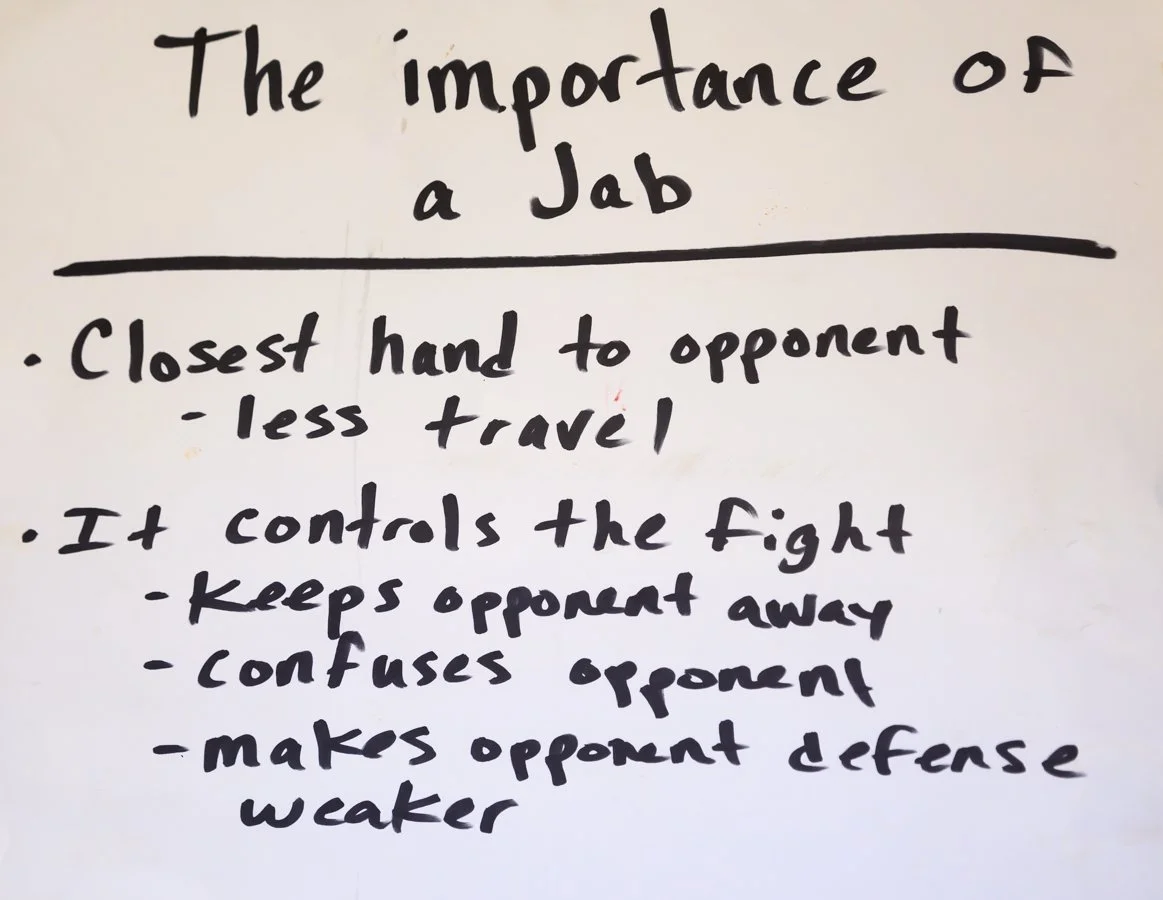 The importance of
a Jab
· Closest hand to opponent
- less travel
· It controls the fight
- Keeps opponent away
- confuses opponent
- makes opponent defense
weaker